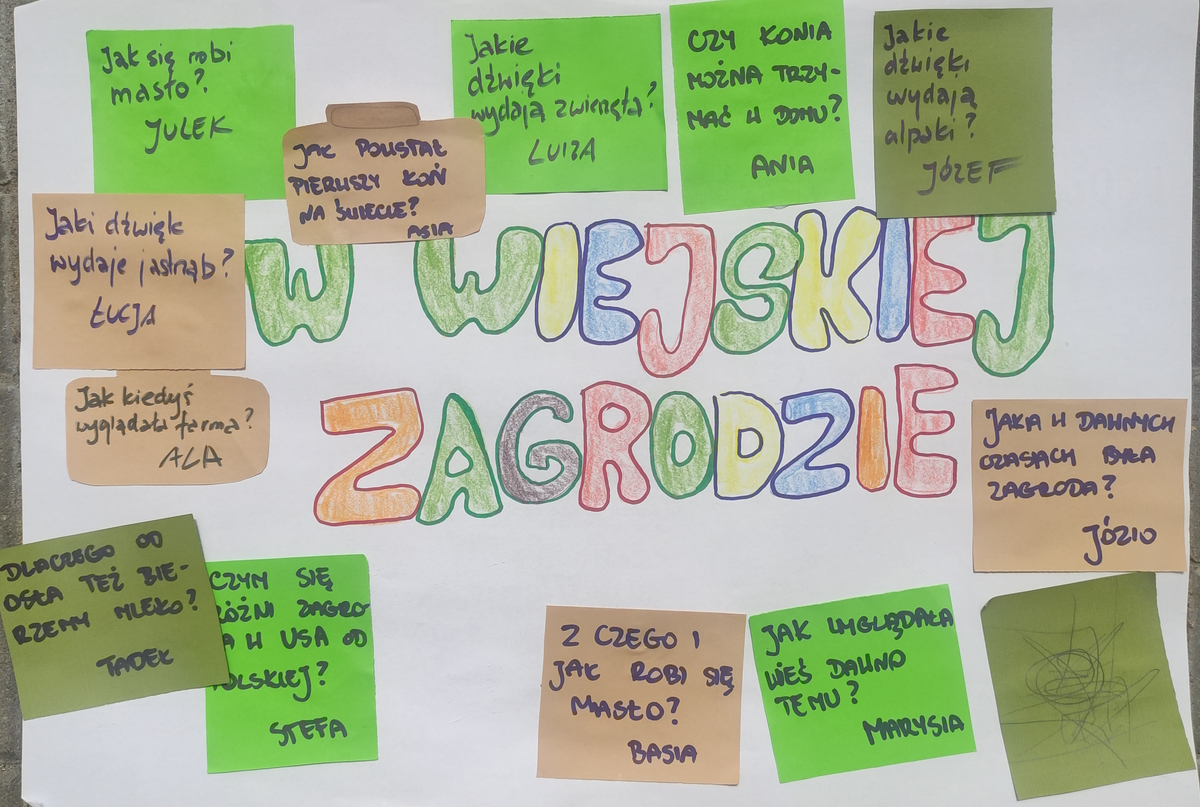 Jak się robi
masło?
JULEK
JAK POWSTAŁ
PIERWSZY KOŃ
NA ŚWIECIE?
ASIA
Jakie
dźwięki
wydają zwierzęta?
LUIZA
CZY KONIA
MOŻNA TRZY-
MAĆ W DOMU?
ANIA
Jakie
dźwięki
wydają
alpaki?
JÓZEF
Jaki dźwięk
wydaje jastrząb?
ŁUCJA
W WIEJSKIEJ
ZAGRODZIE
Jak kiedyś
wyglądała farma?
ALA
JAKA W DAWNYCH
CZASACH BYŁA
ZAGRODA?
JÓZIO
DLACZEGO OD
OSŁA TEŻ BIE-
RZEMY MLEKO?
TADEK
CZYM SIĘ
RÓŻNI ZAGRO-
A W USA OD
POLSKIEJ?
STEFA
Z CZEGO I
JAK ROBI SIĘ
MASŁO?
BASIA
JAK WYGLĄDAŁA
WIEŚ DAWNO
TEMU?
MARYSIA